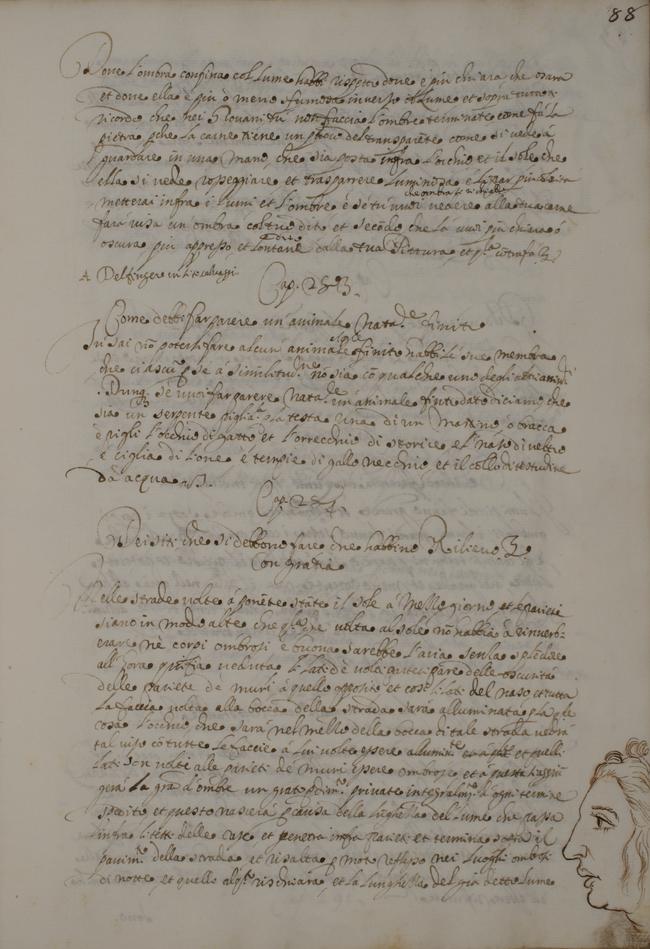 88
Dove l'ombra confina col lume habbi rispetto dove è più chiara che oscura
et dove ella è più ò meno sfumosa inverso il lume et sopra tutto ti
ricordo che nei Giovani tu non faccia l'ombre terminate come fa la
pietra perche la carne tiene un poco del transparente come si vede à
guardare in una mano che sia posta infra l'occhio et il sole che
ella si vede rosseggiare et trasparere luminosa
metterai infra i lumi et l'ombre è se tu vuoi vedere
che ombra si richiede
alla tua carne
farà visa un ombra col tuo dito et secondo che la vuoi più chiara ò
oscura più appresso et lontano
il dito
dalla tua Pittura et
A Del fingere un sito selvaggi
Cap. 283.
Come debbi far parere un animale finto
Tu sai non potersi fare alcun animale
il quale
non habbi le sue membra
che ciascun per se à similitudine non sia con qualche uno degli altri animali
Dunque se vuoi far parere naturale un animale finto dato diciamo che
sia un serpente piglia per la testa una di un Mastino ò bracco
è gli l'occhi di gatto et l'orrecchie di istorice e l' naso di veltro
è ciglia di lione è tempie di gallo vecchio et il collo di testudine
da acqua
Cap. 284.
Dei siti che si debbono fare che habbino Rilievo
Con gratia
Nelle strade volte à ponente stante il sole à mezzo giorno et le parieti
siano in modo alte che quella che volta al sole non habbia à riverb-
erare nè corpi ombrosi è buona sarebbe l'aria senza splendore
all'hora veduta li lati de volti partecipare delle oscurita
delle pariete de muri à quello opposite et così i lati del naso et tutta
la faccia volta alla bocca della strada sarà alluminata per le
cosa l'occhio che sarà nel mezzo della bocca di tale strada vedrà
tal viso con tutte le faccie à lui volte essere alluminate et quelli
lati son volti alle parieti de muri essere ombrose et à questa aggiu
gerà la gratia d'ombre un grato private integralmente d'ogni termine
spedito et questo nascierà per causa della lunghezza del lume che passa
infra i tetti delle case et penetra infra parieti et termina sopra il
pavimento della strada et risalta per moto reflesso nei luoghi ombrosi
di notte et quello rischiara et la lunghezza del già detto lume